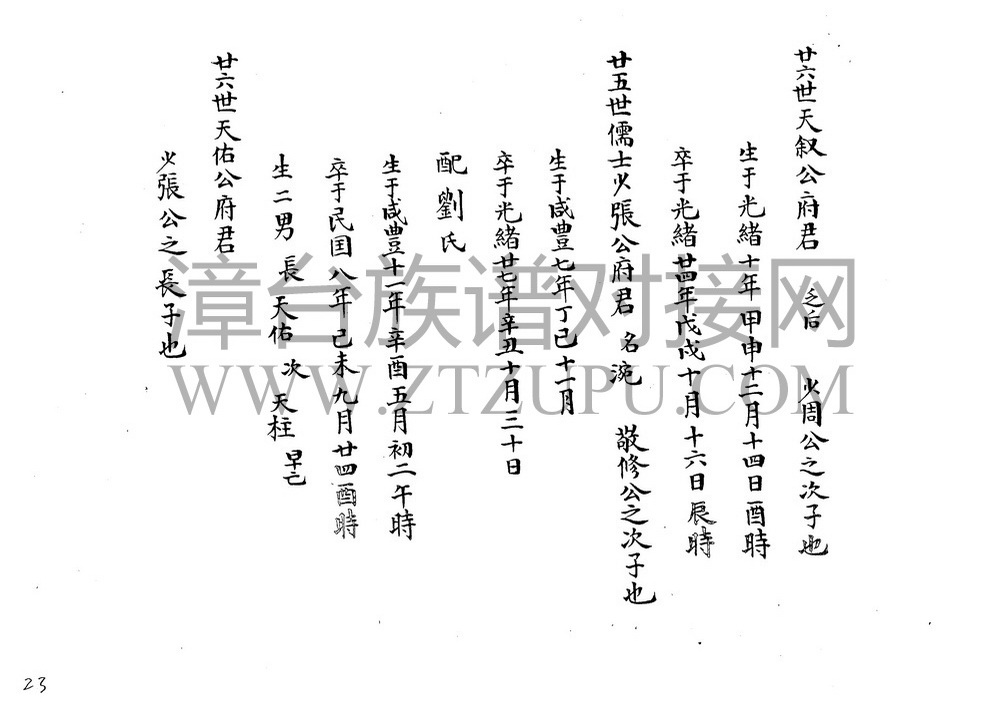 廿六世天叙公府君 乏后 少周公之次子也
生于光緒十年甲申十二月十四日酉時
卒于光緒廿四年戊戌十月十六日辰時
廿五世儒士少張公府君 名涴 敬修公之次子也
生于咸豊七年丁巳十一月
卒于光緒廿七年辛丑十月三十日
配劉氏
生于咸豊十一年辛酉五月初二午時
卒于民国八年己未九月廿四酉時
生二男 長天佑 次天柱 早亡
廿六世天佑公府君
少張公之長子也
漳台族谱对接网
WWW.ZTZUPU.COM
23